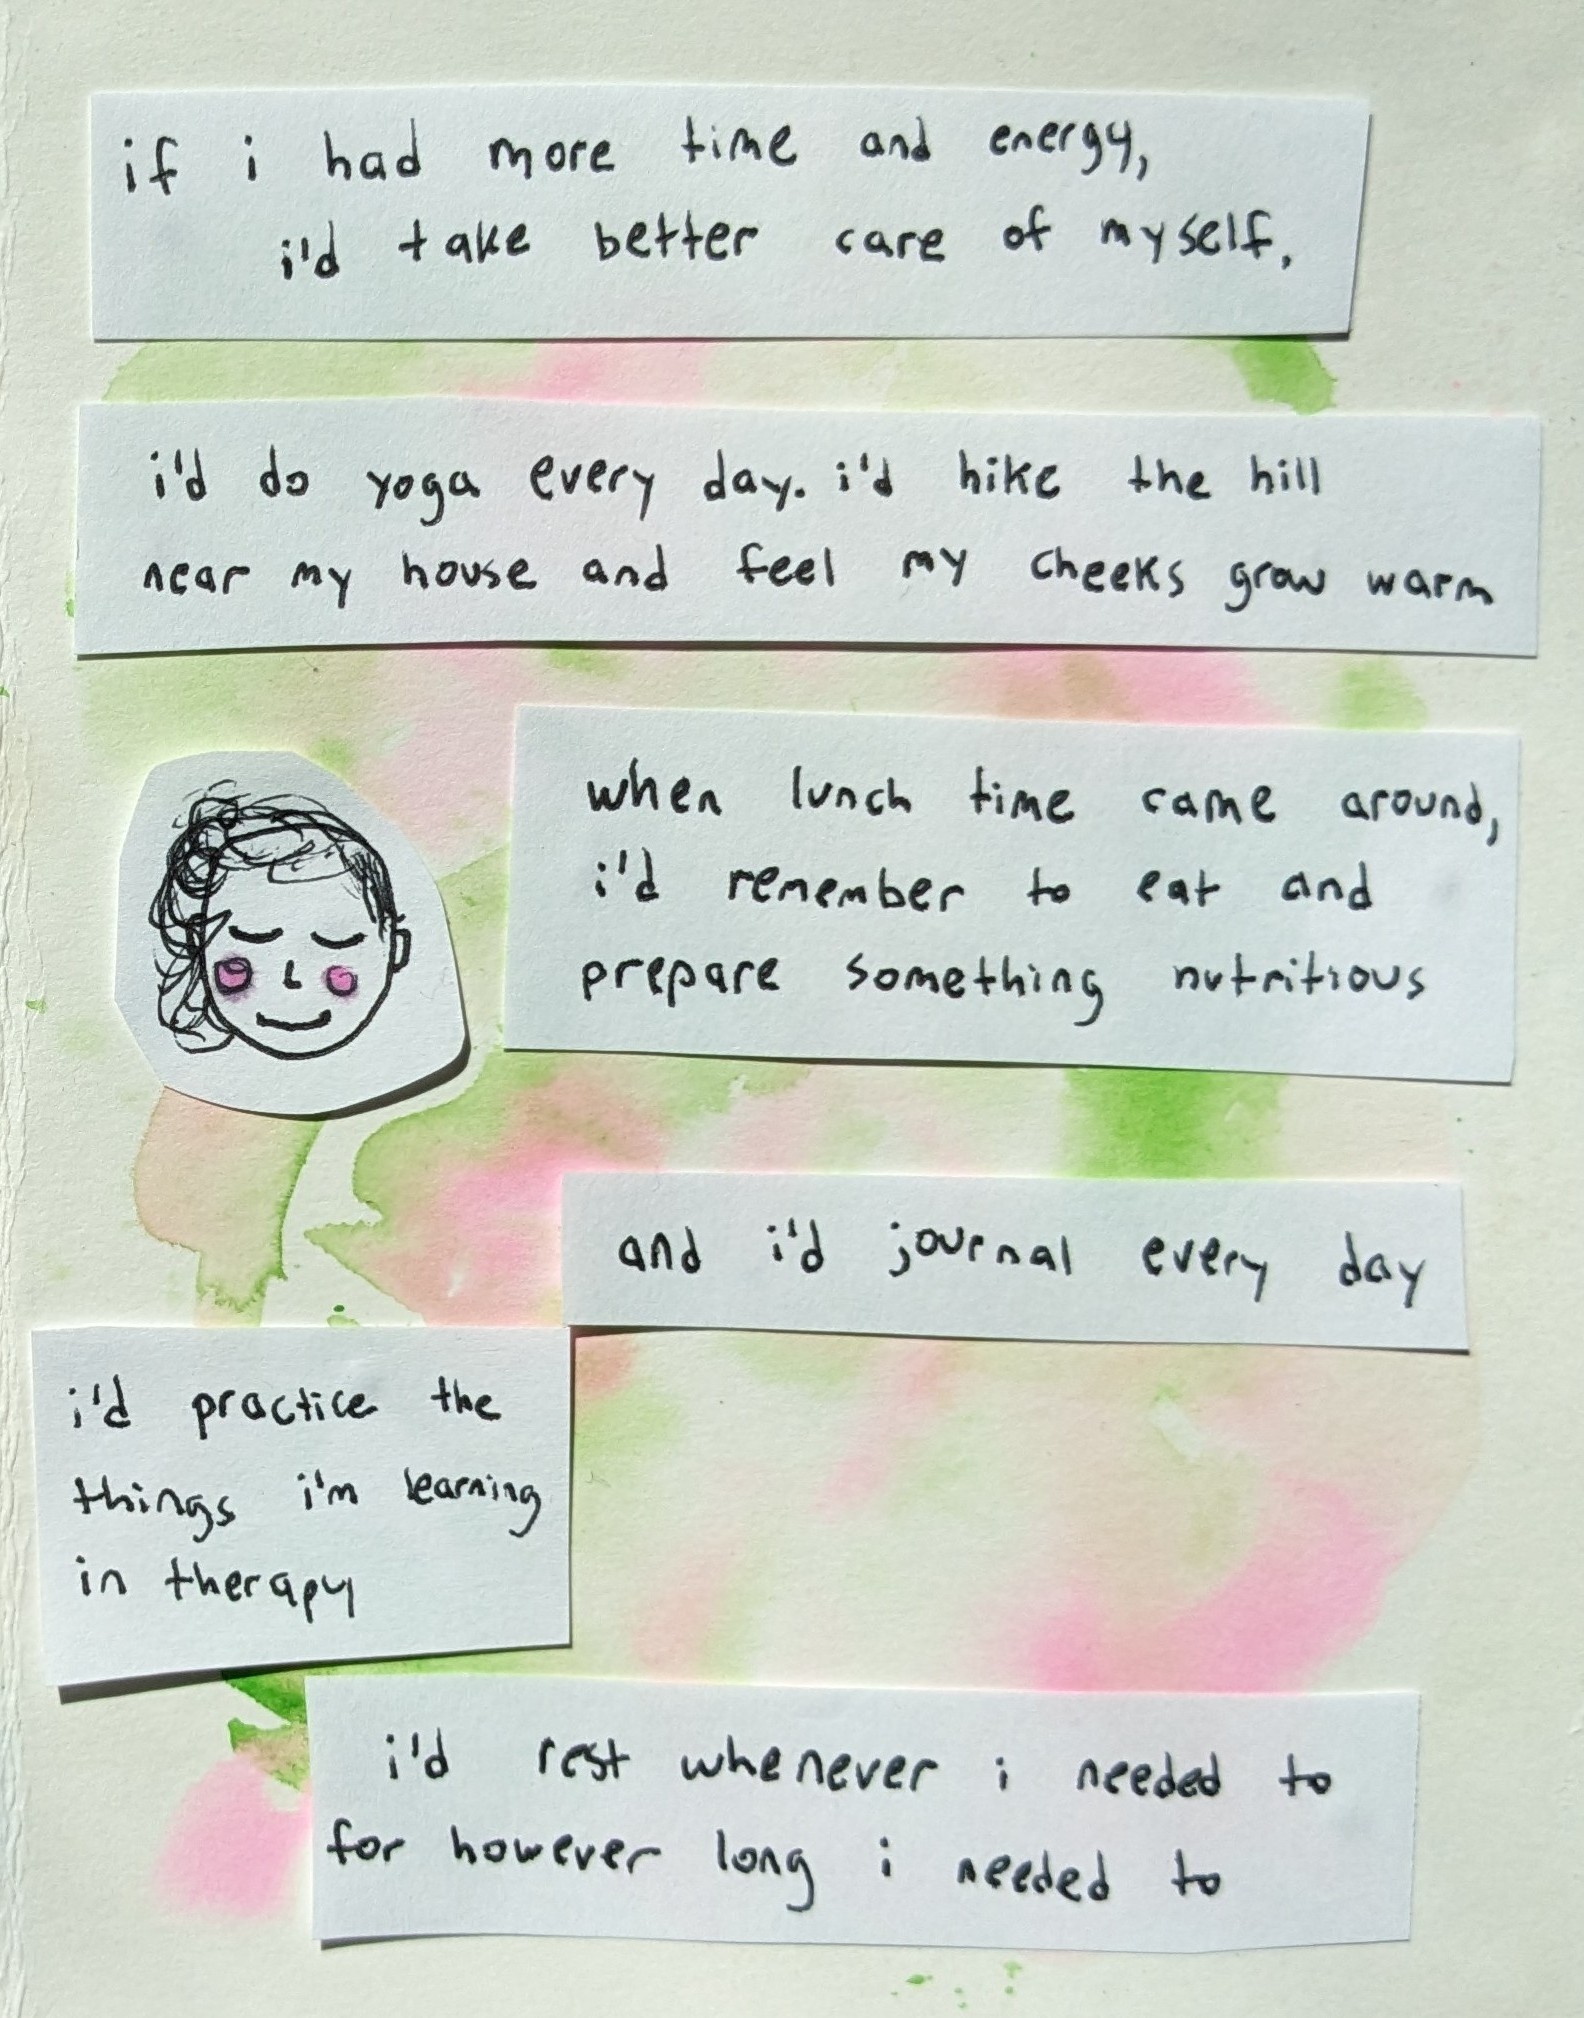 if i had more time and energy,
i'd take better care of myself.
i'd do yoga every day. i'd hike the hill
near my house and feel my cheeks grow warm
when lunch time came around,
i'd remember to eat and
prepare something nutritious
and i'd journal every day
i'd practice the
things i'm learning
in therapy
i'd rest whenever i needed to
for however long i needed to